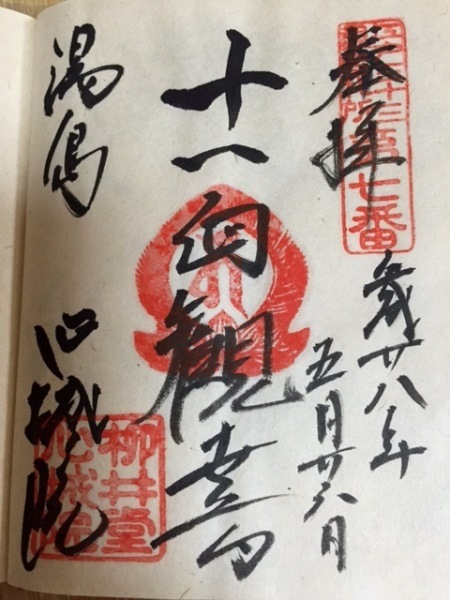 奉拝
第七番
平成廿八年
五月廿六日
十一面観世音
湯島 心城院
柳井堂
心城院